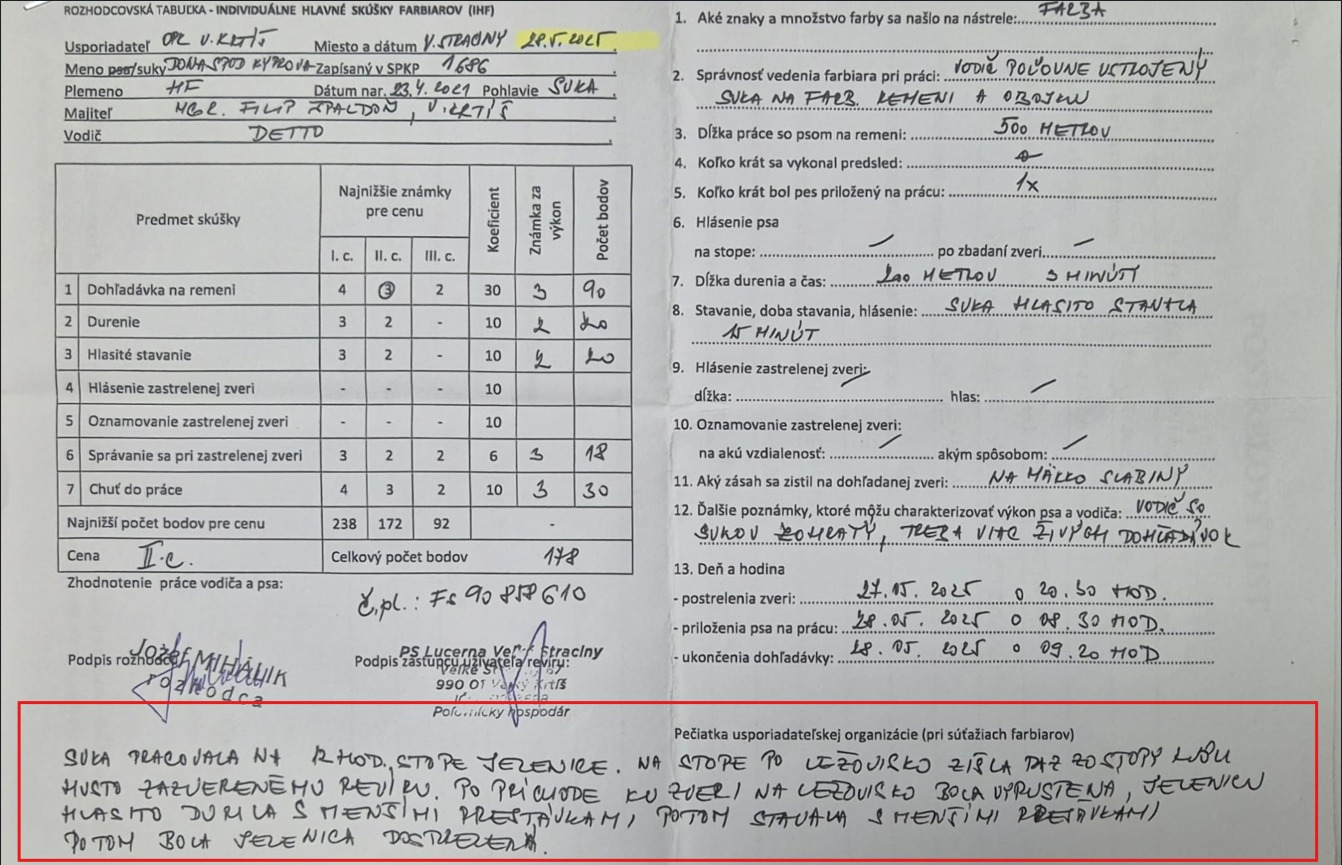 ROZHODCOVSKÁ TABUĽKA - INDIVIDUÁLNE HLAVNÉ SKÚŠKY FARBIAROV (IHF)
Usporiadateľ OPK V.KRTÍŠ Miesto a dátum V.STRACINY 28.5.2025
Meno psa/suky DONA SPOD KYPROVA Zapísaný v SPKP 1686
Plemeno HF Dátum nar. 23.4.2021 Pohlavie SUKA
Majiteľ MGR. FILIP ŠPALDOŇ, V.KRTÍŠ
Vodič DETTO
Predmet skúšky Najnižšie známky pre cenu Koeficient Známka za výkon Počet bodov
I. c. II. c. III. c.
1 Dohľadávka na remeni 4 3 2 30 3 90
2 Durenie 3 2 - 10 2 20
3 Hlasité stavanie 3 2 - 10 2 20
4 Hlásenie zastrelenej zveri - - - 10
5 Oznamovanie zastrelenej zveri - - - 10
6 Správanie sa pri zastrelenej zveri 3 2 2 6 3 18
7 Chuť do práce 4 3 2 10 3 30
Najnižší počet bodov pre cenu 238 172 92 -
Cena II.c. Celkový počet bodov 178
Zhodnotenie práce vodiča a psa:
Č.pl.: FS 90 858610
Jozef MIHÁLIK
Podpis rozhodcu
rozhodca
PS Lucerna Veľ. Straciny
Podpis zástupcu užívateľa revíru:
990 01 Veľký Krtíš
Poľovnícky hospodár
1. Aké znaky a množstvo farby sa našlo na nástrele: FARBA
2. Správnosť vedenia farbiara pri práci: VODIČ POĽOVNE USTROJENÝ
SUKA NA FARB. REMENI A OBOJKU
3. Dĺžka práce so psom na remeni: 500 METROV
4. Koľko krát sa vykonal predsled: 0
5. Koľko krát bol pes priložený na prácu: 1x
6. Hlásenie psa
na stope: po zbadaní zveri
7. Dĺžka durenia a čas: 200 METROV 3 MINÚTY
8. Stavanie, doba stavania, hlásenie: SUKA HLASITO STAVALA
15 MINÚT
9. Hlásenie zastrelenej zveri:
dĺžka: hlas:
10. Oznamovanie zastrelenej zveri:
na akú vzdialenosť: akým spôsobom:
11. Aký zásah sa zistil na dohľadanej zveri: NA MÄKKO SLABINY
12. Ďalšie poznámky, ktoré môžu charakterizovať výkon psa a vodiča: VODIČ SO
SUKOU ZOHRATÝ, TREBA VIAC ŽIVÝCH DOHĽADÁVOK
13. Deň a hodina
- postrelenia zveri: 27.05.2025 o 20.30 HOD.
- priloženia psa na prácu: 28.05.2025 o 08.30 HOD.
- ukončenia dohľadávky: 28.05.2025 o 09.20 HOD
Pečiatka usporiadateľskej organizácie (pri súťažiach farbiarov)
SUKA PRACOVALA NA 12 HOD. STOPE JELENICE. NA STOPE PO LEŽOVISKO ZIŠLA RAZ ZO STOPY KVÔLI
HUSTO ZAZVERENÉMU REVÍRU. PO PRÍCHODE KU ZVERI NA LEŽOVISKO BOLA VYPUSTENÁ, JELENICU
HLASITO DURILA S MENŠÍMI PRESTÁVKAMI, POTOM STAVALA S MENŠÍMI PRESTÁVKAMI,
POTOM BOLA JELENICA DOSTRELENÁ.